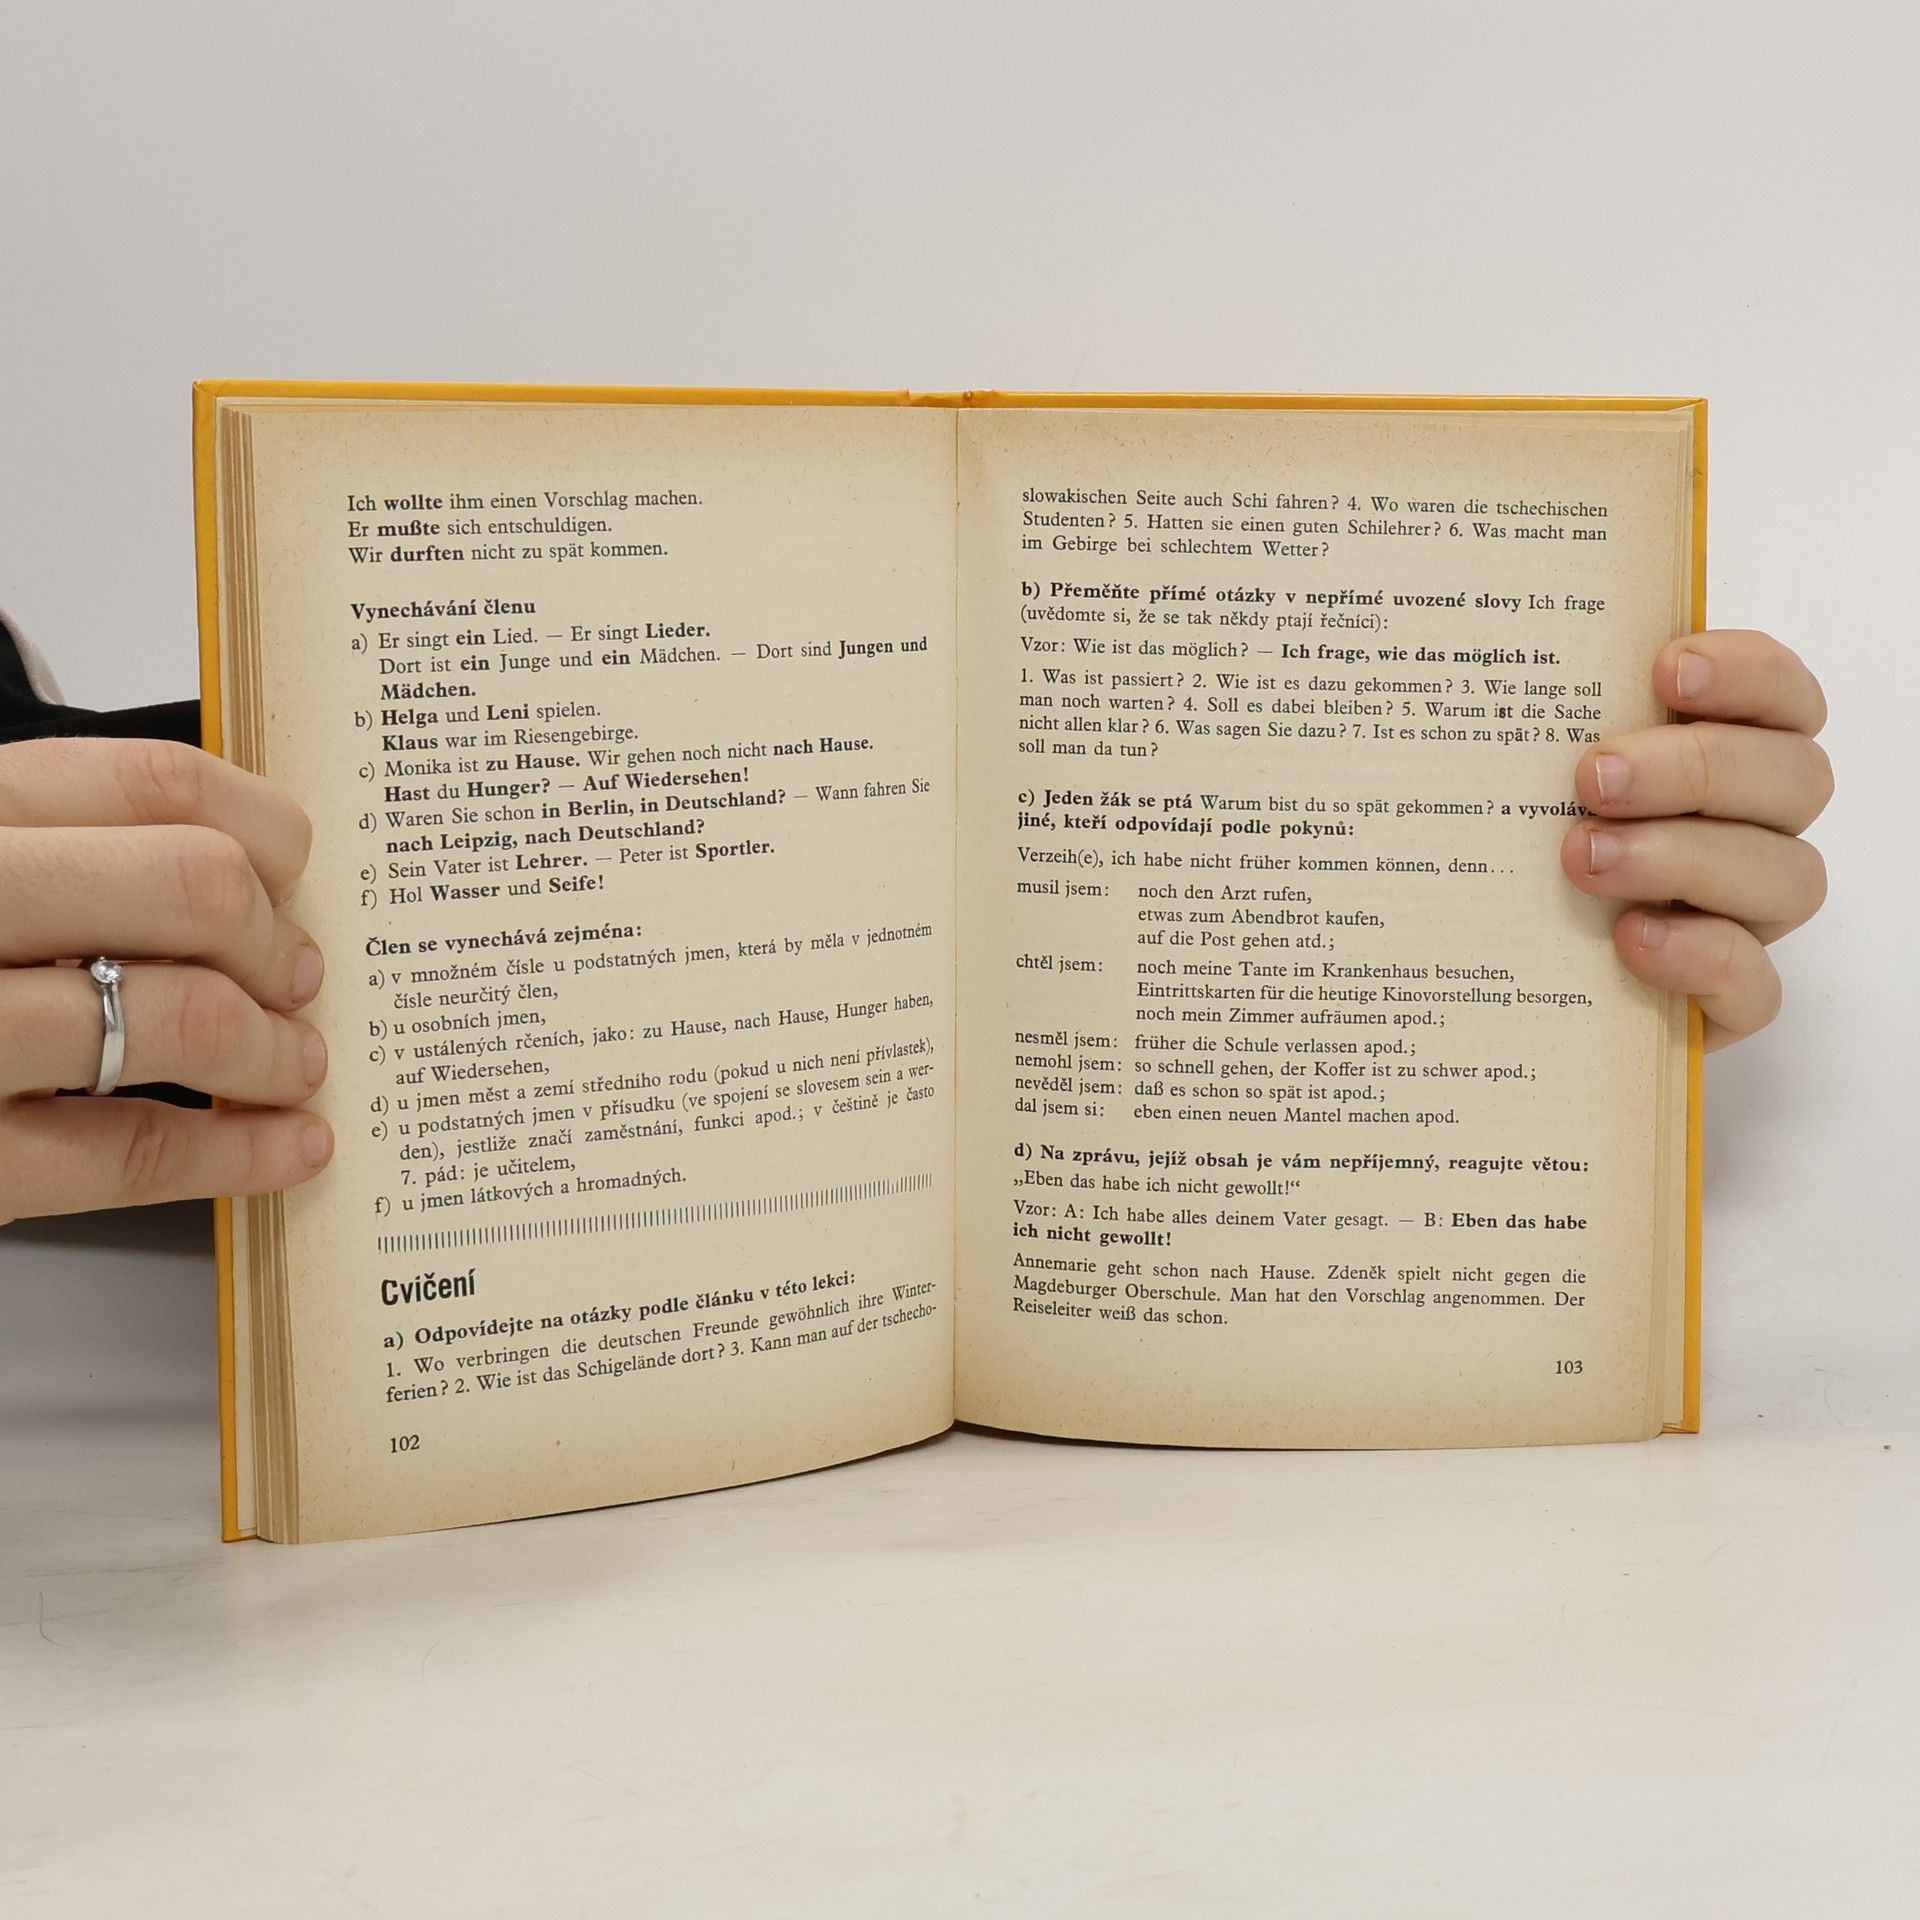 Ich wollte ihm einen Vorschlag machen.
Er mußte sich entschuldigen.
Wir durften nicht zu spät kommen.
Vynechávání členu
a) Er singt ein Lied. — Er singt Lieder.
Dort ist ein Junge und ein Mädchen. — Dort sind Jungen und
Mädchen.
b) Helga und Leni spielen.
Klaus war im Riesengebirge.
c) Monika ist zu Hause. Wir gehen noch nicht nach Hause.
Hast du Hunger? — Auf Wiedersehen!
d) Waren Sie schon in Berlin, in Deutschland? — Wann fahren Sie
nach Leipzig, nach Deutschland?
e) Sein Vater ist Lehrer. — Peter ist Sportler.
f) Hol Wasser und Seife!
Člen se vynechává zejména:
a) v množném čísle u podstatných jmen, která by měla v jednotném
čísle neurčitý člen,
b) u osobních jmen,
c) v ustálených rčeních, jako: zu Hause, nach Hause, Hunger haben,
auf Wiedersehen,
d) u jmen měst a zemí středního rodu (pokud u nich není přívlastek),
e) u podstatných jmen v přísudku (ve spojení se slovesem sein a wer-
den), jestliže značí zaměstnání, funkci apod.; v češtině je často
7. pád: je učitelem,
f) u jmen látkových a hromadných.
Cvičení
a) Odpovídejte na otázky podle článku v této lekci:
1. Wo verbringen die deutschen Freunde gewöhnlich ihre Winter-
ferien? 2. Wie ist das Schigelände dort? 3. Kann man auf der tschecho-
102
slowakischen Seite auch Schi fahren? 4. Wo waren die tschechischen
Studenten? 5. Hatten sie einen guten Schilehrer? 6. Was macht man
im Gebirge bei schlechtem Wetter?
b) Přeměňte přímé otázky v nepřímé uvozené slovy Ich frage
(uvědomte si, že se tak někdy ptají řečníci):
Vzor: Wie ist das möglich? — Ich frage, wie das möglich ist.
1. Was ist passiert? 2. Wie ist es dazu gekommen? 3. Wie lange soll
man noch warten? 4. Soll es dabei bleiben? 5. Warum ist die Sache
nicht allen klar? 6. Was sagen Sie dazu? 7. Ist es schon zu spät? 8. Was
soll man da tun?
c) Jeden žák se ptá Warum bist du so spät gekommen? a vyvolává
jiné, kteří odpovídají podle pokynů:
Verzeih(e), ich habe nicht früher kommen können, denn...
musil jsem: noch den Arzt rufen,
etwas zum Abendbrot kaufen,
auf die Post gehen atd.;
chtěl jsem: noch meine Tante im Krankenhaus besuchen,
Eintrittskarten für die heutige Kinovorstellung besorgen,
noch mein Zimmer aufräumen apod.;
nesměl jsem: früher die Schule verlassen apod.;
nemohl jsem: so schnell gehen, der Koffer ist zu schwer apod.;
nevěděl jsem: daß es schon so spät ist apod.;
dal jsem si: eben einen neuen Mantel machen apod.
d) Na zprávu, jejíž obsah je vám nepříjemný, reagujte větou:
„Eben das habe ich nicht gewollt!“
Vzor: A: Ich habe alles deinem Vater gesagt. — B: Eben das habe
ich nicht gewollt!
Annemarie geht schon nach Hause. Zdeněk spielt nicht gegen die
Magdeburger Oberschule. Man hat den Vorschlag angenommen. Der
Reiseleiter weiß das schon.
103